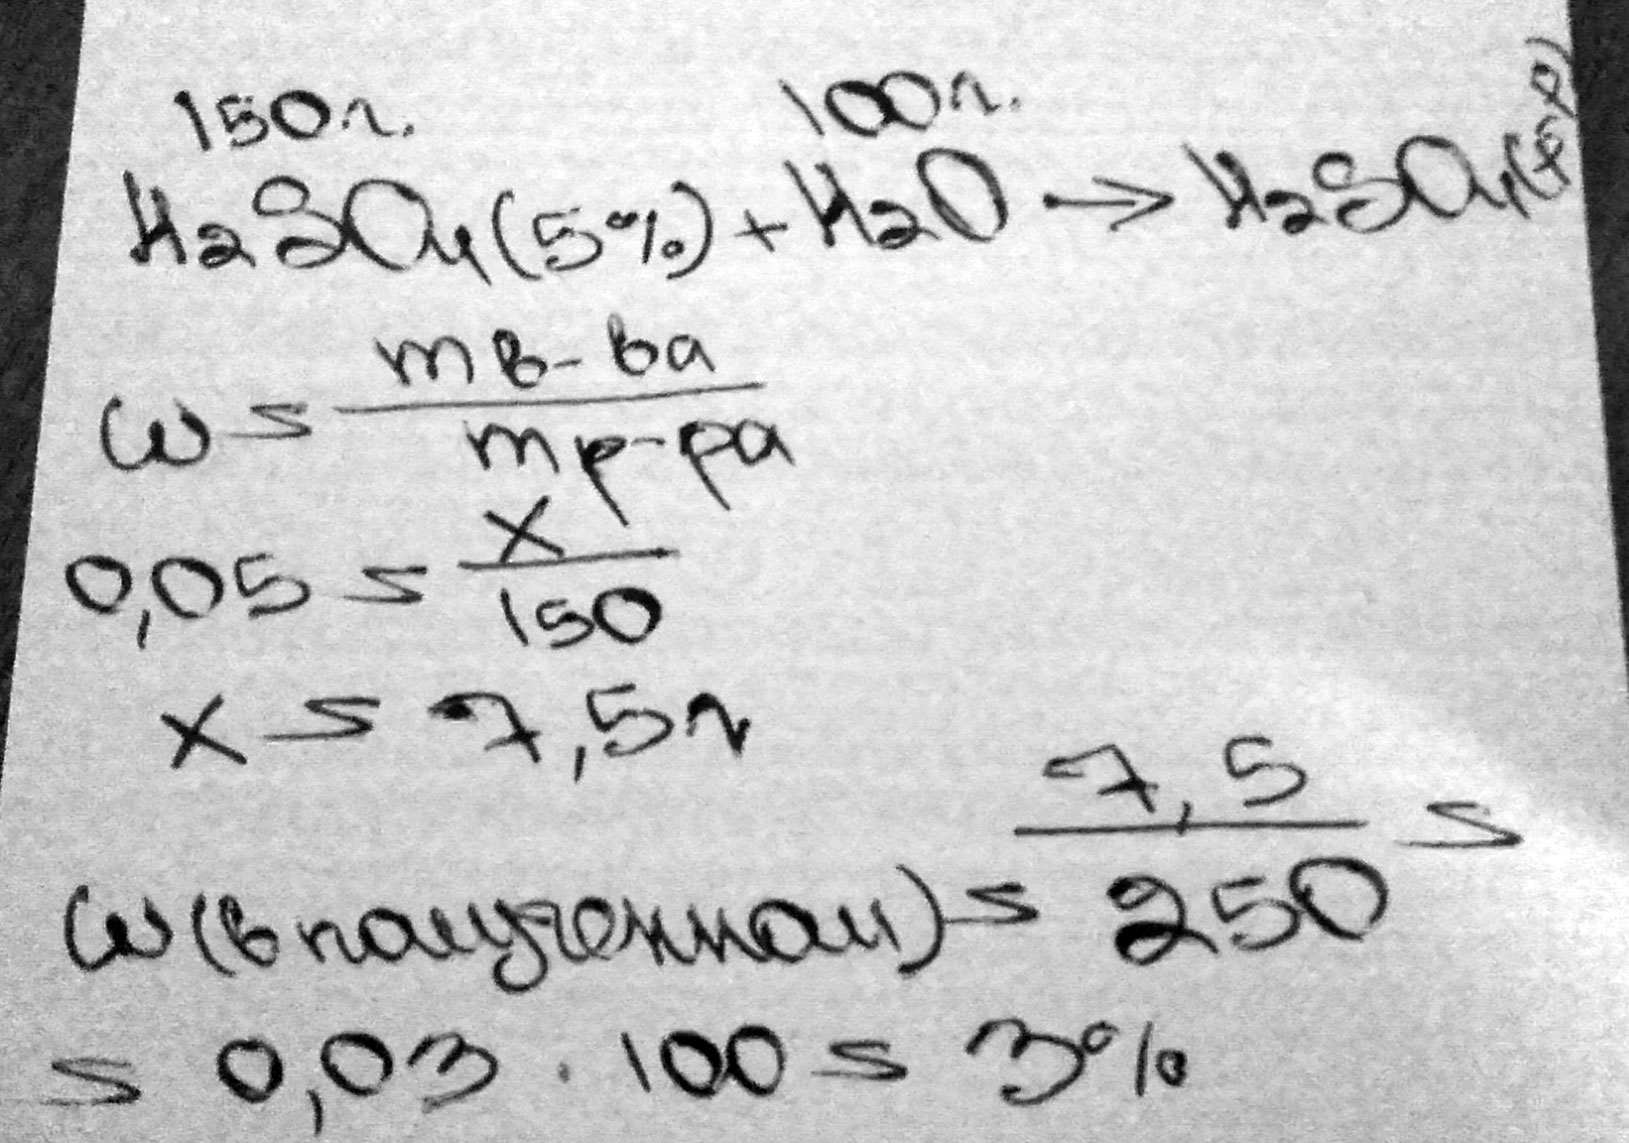 150г. 100г.
H2SO4(5%)+H2O → H2SO4(
ω = m в-ва / m р-ра
0,05 = x / 150
x = 7,5г
ω(в полученном) = 7,5 / 250 =
= 0,03 . 100 = 3%